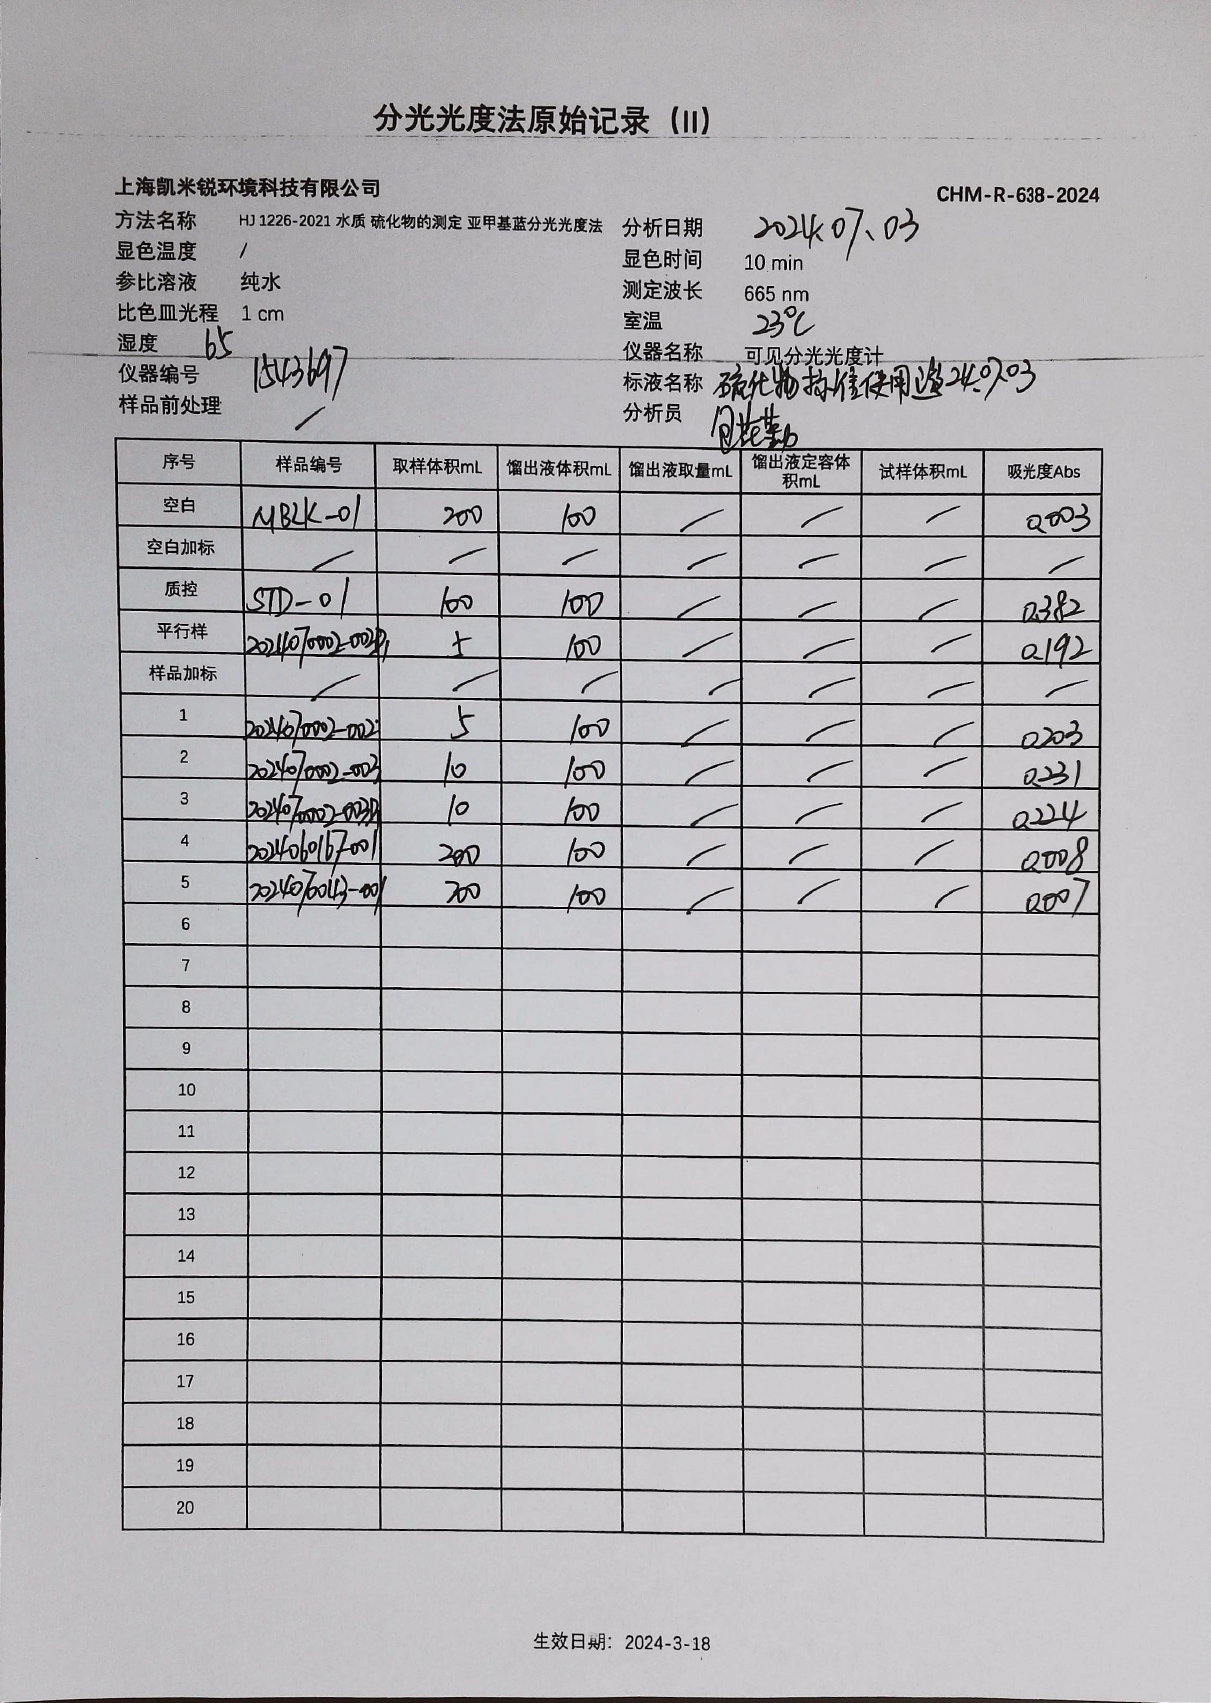 分光光度法原始记录（II）
上海凯米锐环境科技有限公司
CHM-R-638-2024
方法名称 HJ 1226-2021 水质 硫化物的测定 亚甲基蓝分光光度法 分析日期 2024.07.03
显色温度 / 显色时间 10 min
参比溶液 纯水 测定波长 665 nm
比色皿光程 1 cm 室温 23℃
湿度 65 仪器名称 可见分光光度计
仪器编号 1543697 标液名称 硫化物标准使用液24.07.03
样品前处理 / 分析员
序号 样品编号 取样体积mL 馏出液体积mL 馏出液取量mL 馏出液定容体积mL 试样体积mL 吸光度Abs
空白 MBLK-01 200 100 / / / 0.003
空白加标 / / / / / / /
质控 STD-01 100 100 / / / 0.382
平行样 2024070002-002P1 5 100 / / / 0.192
样品加标 / / / / / / /
1 2024070002-002 5 100 / / / 0.203
2 2024070002-003 10 100 / / / 0.231
3 2024070002-003P 10 100 / / / 0.224
4 2024060167-001 200 100 / / / 0.008
5 2024070043-001 200 100 / / / 0.007
6
7
8
9
10
11
12
13
14
15
16
17
18
19
20
生效日期：2024-3-18